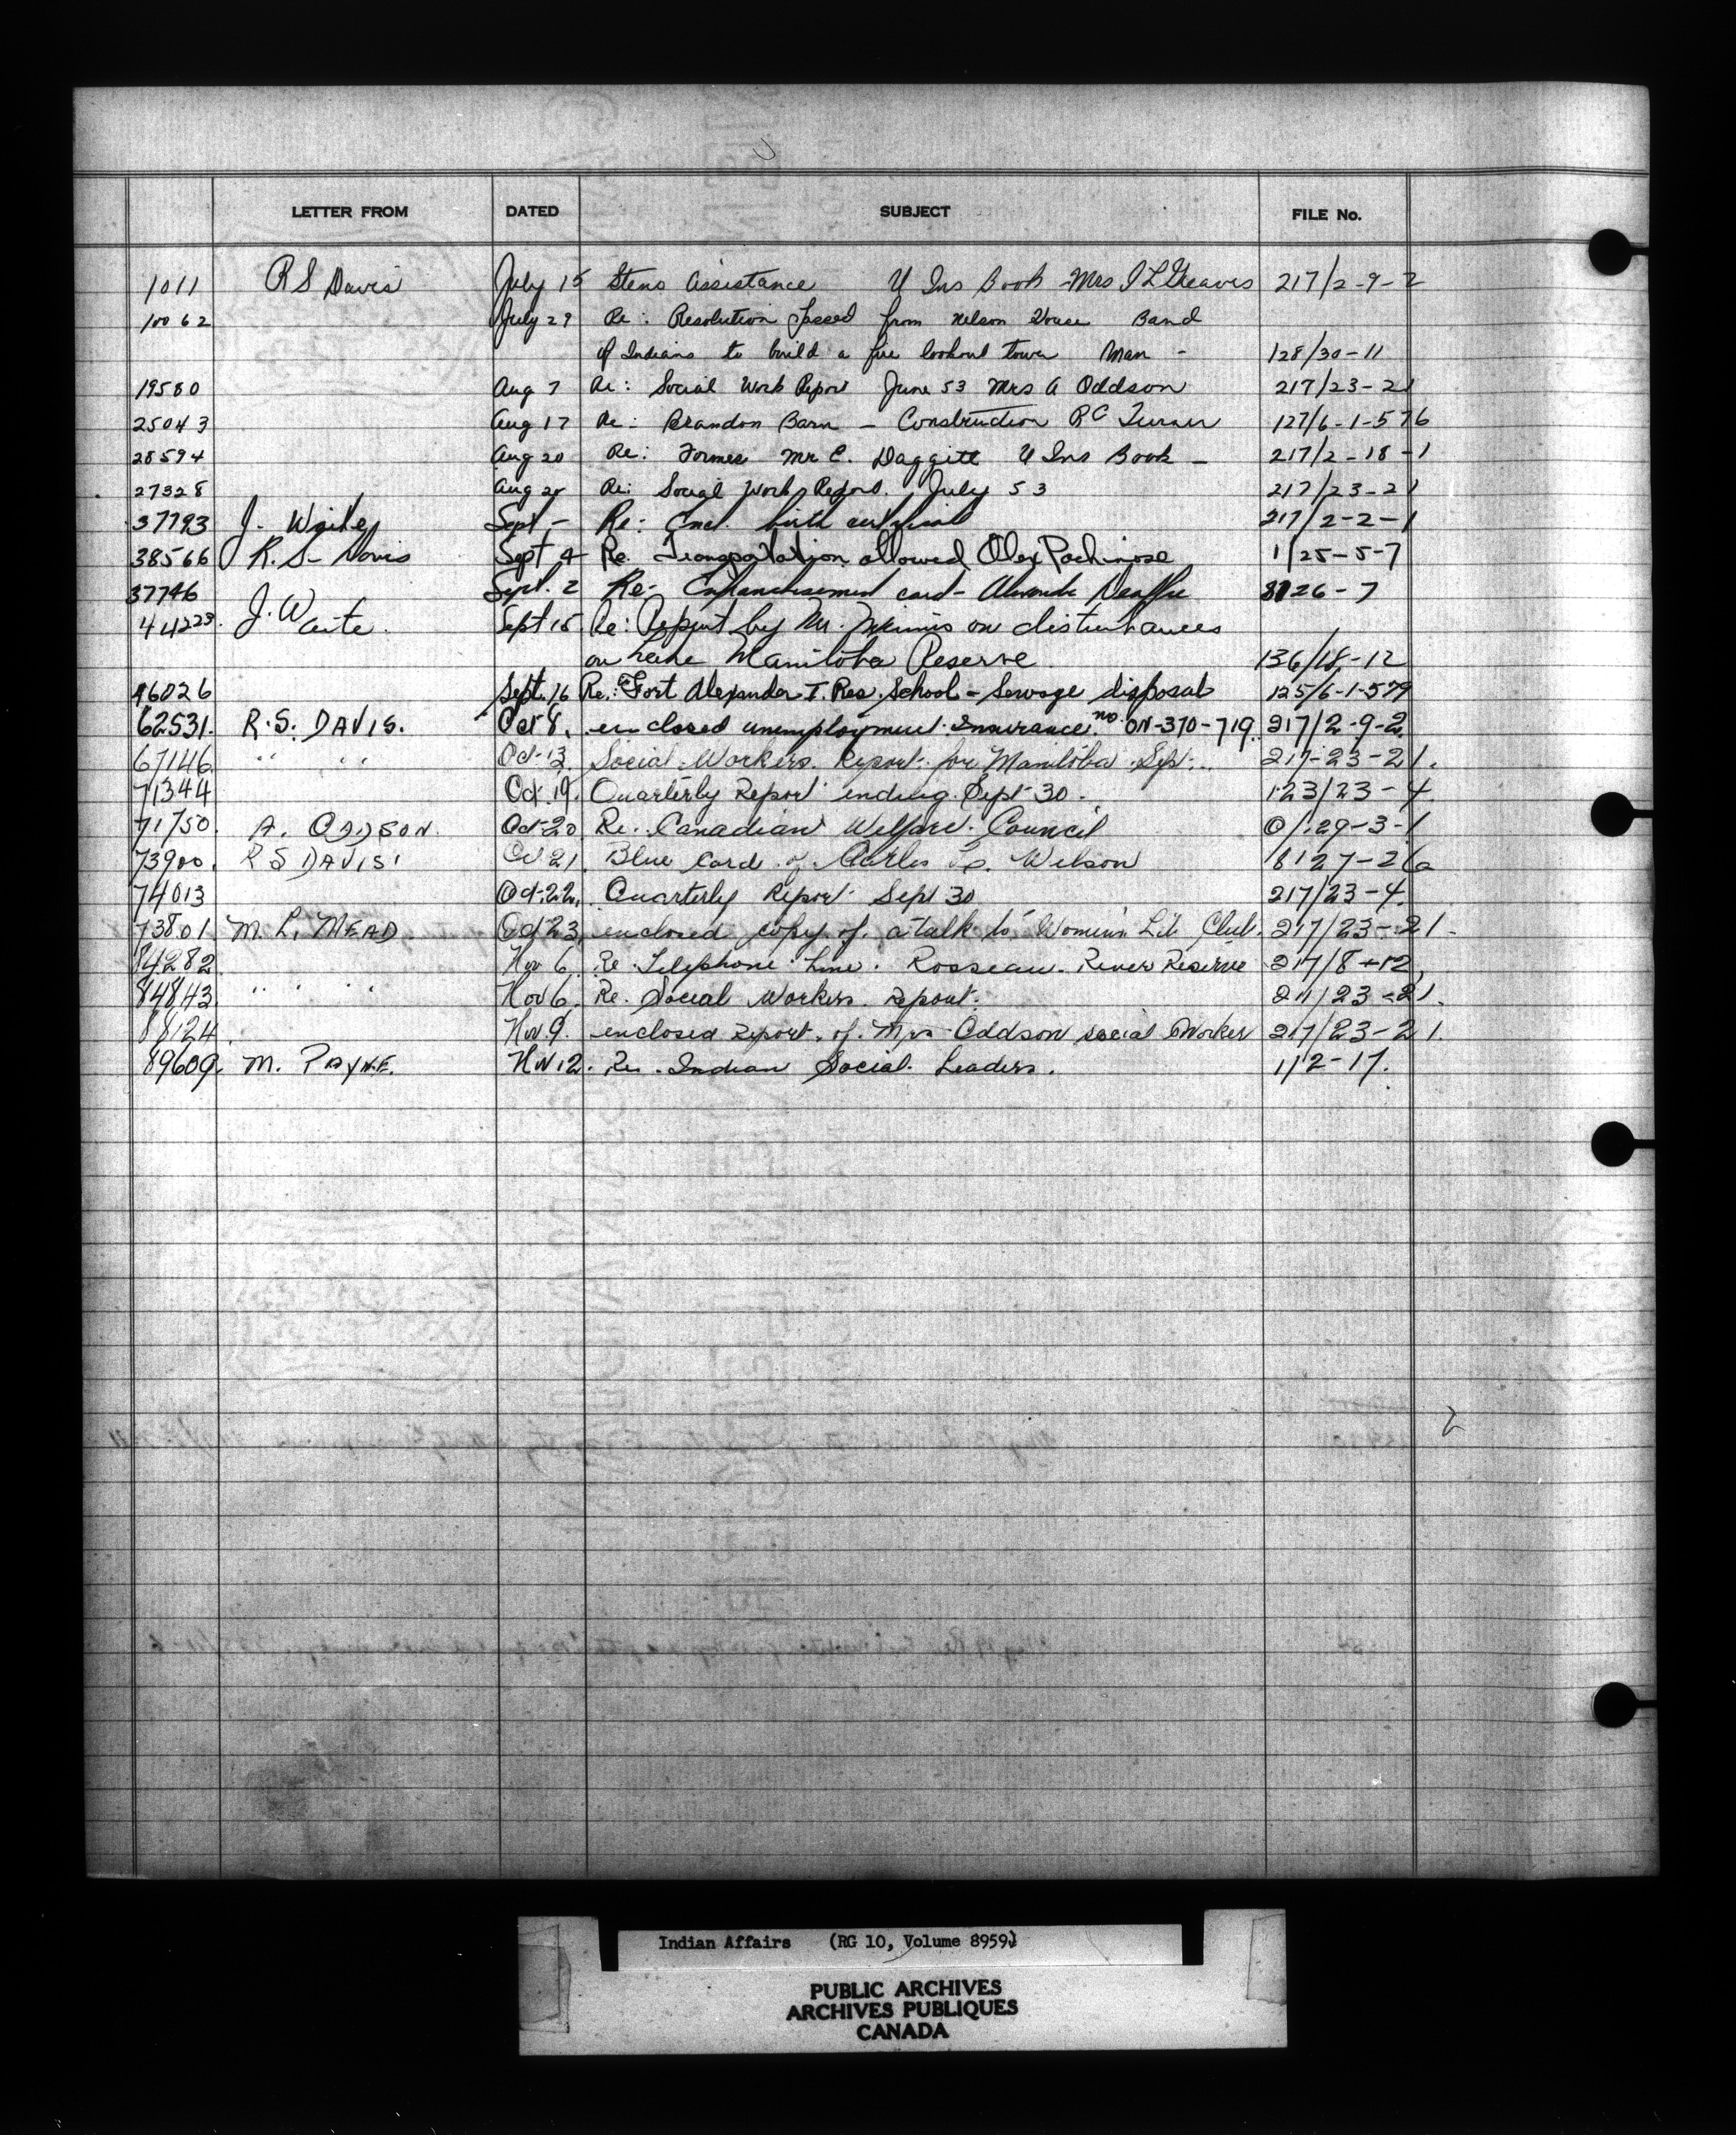 LETTER FROM DATED SUBJECT FILE No.
1011 R S Davis July 15 Steno Assistance U Ins Book - Mrs I L 217/2-9-2
10062 July 29 Re: Resolution passed from Nelson House Band
of Indians to build a fire lookout tower Man - 128/30-11
19580 Aug 7 Re: Social Work Report June 53 Mrs A Oddson 217/23-21
25043 Aug 17 Re: Brandon Barn - Construction R C Turner 127/6-1-576
28594 Aug 20 Re: Former Mr C. Daggitt U Ins Book - 217/2-18-1
27328 Aug 20 Re: Social Work Report. July 53 217/23-21
37793 J. Waite Sept - Re: Encl. birth 217/2-2-1
38566 R. S. Davis Sept 4 Re. Transportation allowed Alex 1/25-5-7
37746 Sept. 2 Re: Enfranchisement card - 26-7
44223. J. Waite. Sept 15. Re: Report by Mr. on disturbances
on Lake Manitoba Reserve. 136/18-12
46026 Sept. 16 Re.: Fort Alexander I. Res. School - Sewage disposal 125/6-1-579
62531. R. S. DAVIS. Oct 8. enclosed unemployment Insurance no. ON-370-719. 217/2-9-2
67146 " " " Oct-13 Social Workers. Report. for Manitoba Sept. 217-23-21.
71344 Oct. 19. Quarterly Report ending Sept 30. 123/23-4
71750. A. ODDSON. Oct-20 Re. Canadian Welfare Council 0/29-3-1
73900. R S DAVIS. Oct 21. Blue Card of Wilson 8127-26
74013 Oct-22. Quarterly Report Sept 30 217/23-4.
73801. M. L. MEAD. Oct 23, enclosed copy of. a talk to Women's Lit Club. 217/23-21.
84282. Nov 6. Re Telephone Line. Rosseau River Reserve 217/8-12,
84843 " " " " Nov 6. Re. Social Workers. report. 217/23-21.
88124. Nov. 9. enclosed Report. of. Mrs Oddson social Worker 217/23-21.
89609. M. PAYNE. Nov 12. Re. Indian Social Leaders. 1/2-17.
2
Indian Affairs (RG 10, Volume 8959)
PUBLIC ARCHIVES
ARCHIVES PUBLIQUES
CANADA